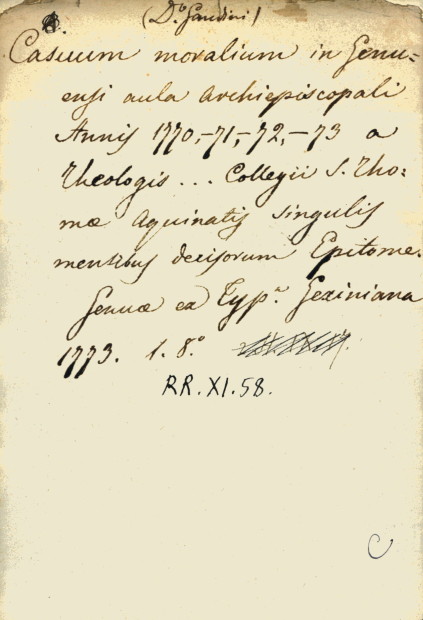 (D.º Gandini)
Casuum moralium in Genu=
ensi aula Archiepiscopali
Annis 1770,-71,-72,-73 a
Theologis... Collegii S. Tho:
mæ Aquinatis singulis
mensibus decisorum Epitome.
Genuæ ex Typ.ª Gexiniana
1773. 1. 8.º
RR.XI.58.
C